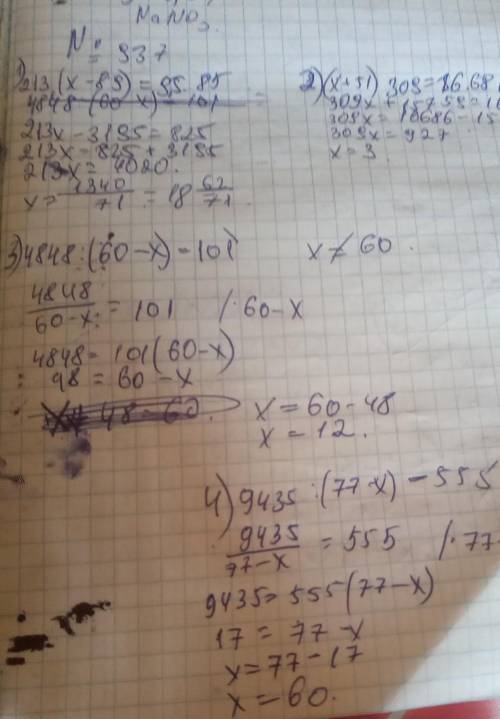 NaNO₃
№ 937
1) 213(x-85)=9585
4848 (60-x)=101
213x-3195=825
213x=825+3195
213x=4020.
x=1340/71=18 62/71.
2) (x+51) 309=16.68
309x+15759=1
309x=16686-15
309x=927
x=3.
3) 4848:(60-x)=101 x≠60.
4848/60-x=101 /·60-x
4848=101(60-x)
48=60-x
48-60.
x=60-48
x=12.
4) 9435:(77-x)=555
9435/77-x=555 /·77-
9435=555(77-x)
17=77-x
x=77-17
x=60.